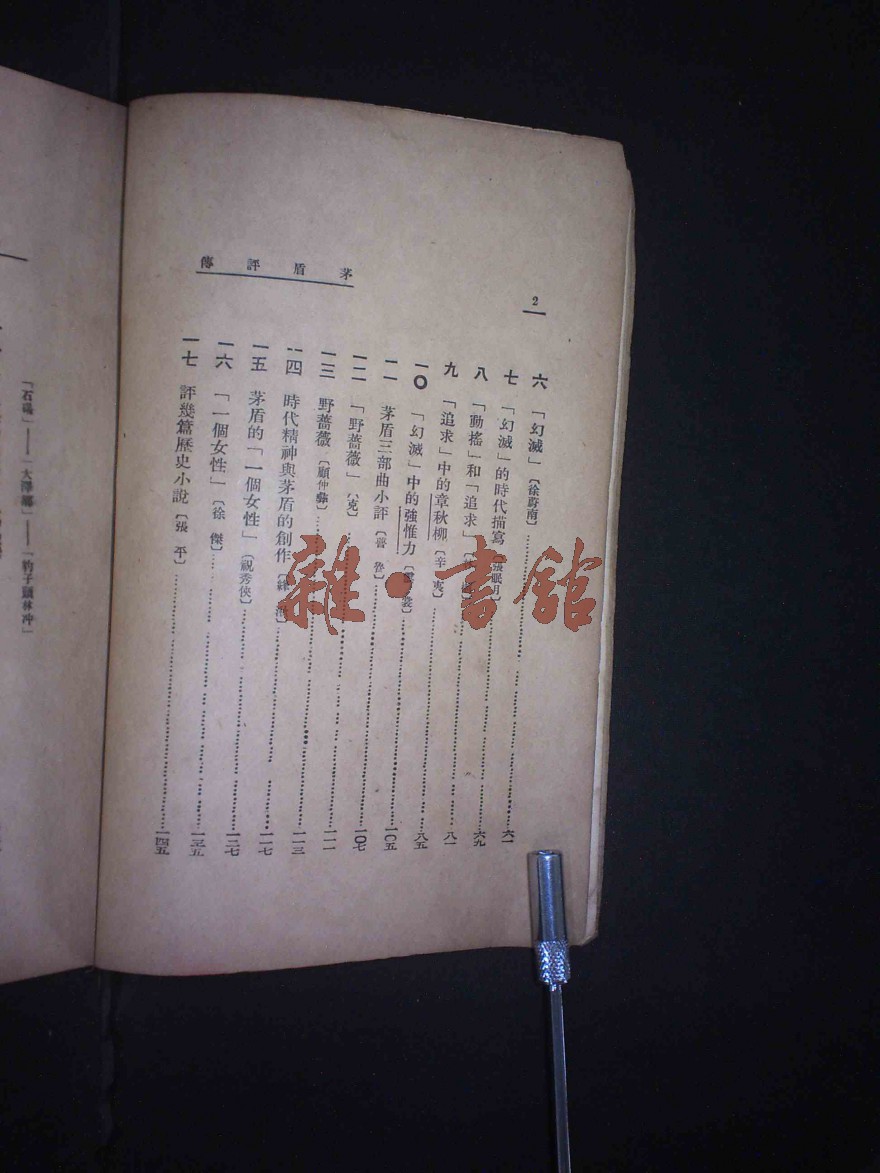 2
茅盾評傳
六 「幻滅」〔徐蔚南〕
七 「幻滅」的時代描寫〔張眠月〕 六一
八 「動搖」和「追求」 六九
九 「追求」中的章秋柳〔辛夷〕 八一
一〇 「幻滅」中的強惟力 八五
一一 茅盾三部曲小評〔普魯〕 一〇五
一二 「野薔薇」〔克〕 一〇七
一三 野薔薇〔顧仲彝〕 一一一
一四 時代精神與茅盾的創作 一一三
一五 茅盾的「一個女性」〔祝秀俠〕 一一七
一六 「一個女性」〔徐傑〕 一二七
一七 評幾篇歷史小說〔張平〕 一四五
「石碣」——「大澤鄉」——「豹子頭林冲」
雜·書館